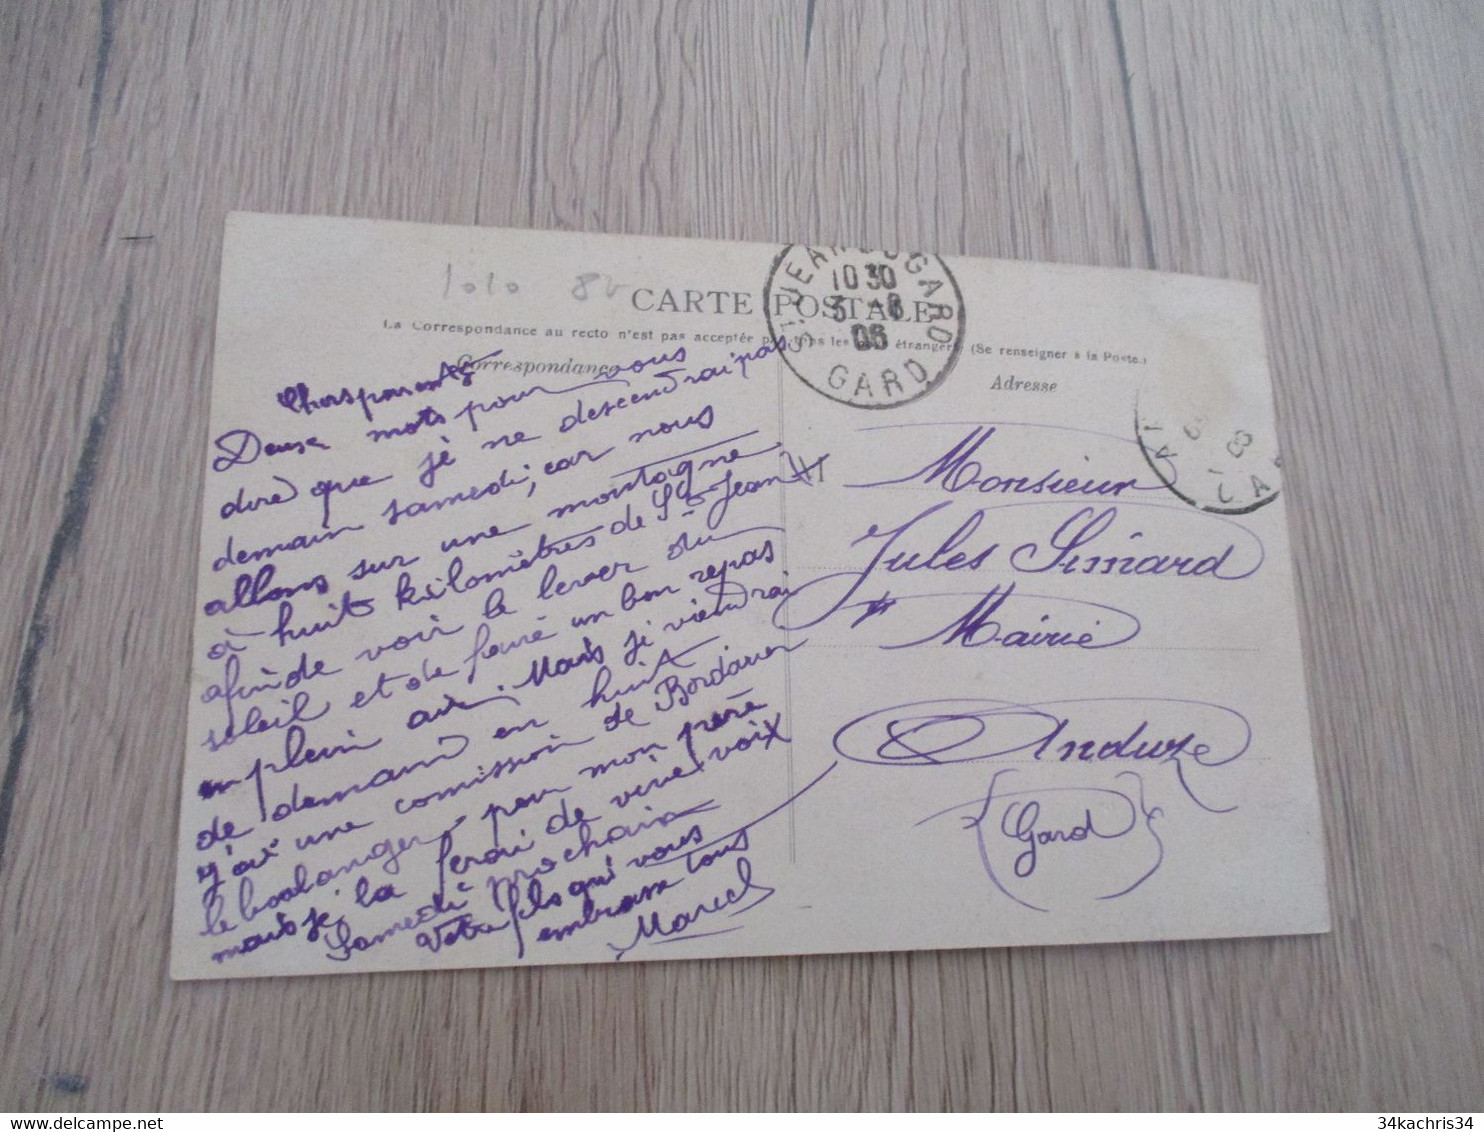 1010 8v
CARTE POSTALE
La Correspondance au recto n'est pas acceptée par tous les pays étrangers (Se renseigner à la Poste.)
Correspondance
Adresse
ST JEAN DU GARD
10 30
3 -8
06
GARD
Chers parents
Deux mots pour vous
dire que je ne descendrai pas
demain samedi, car nous
allons sur une montagne
à huit kilomètres de St-Jean
afin de voir le lever du
soleil et de faire un bon repas
en plein air. Mais je viendrai
de demain en huit
J'ai une comission de Bordarier
le boulanger, pour mon père
mais je la ferai de vive voix
Samedi prochain
Votre fils qui vous
embrasse tous
Marcel
Monsieur
Jules Simard
Mairie
Anduze
(Gard)
34kachris34